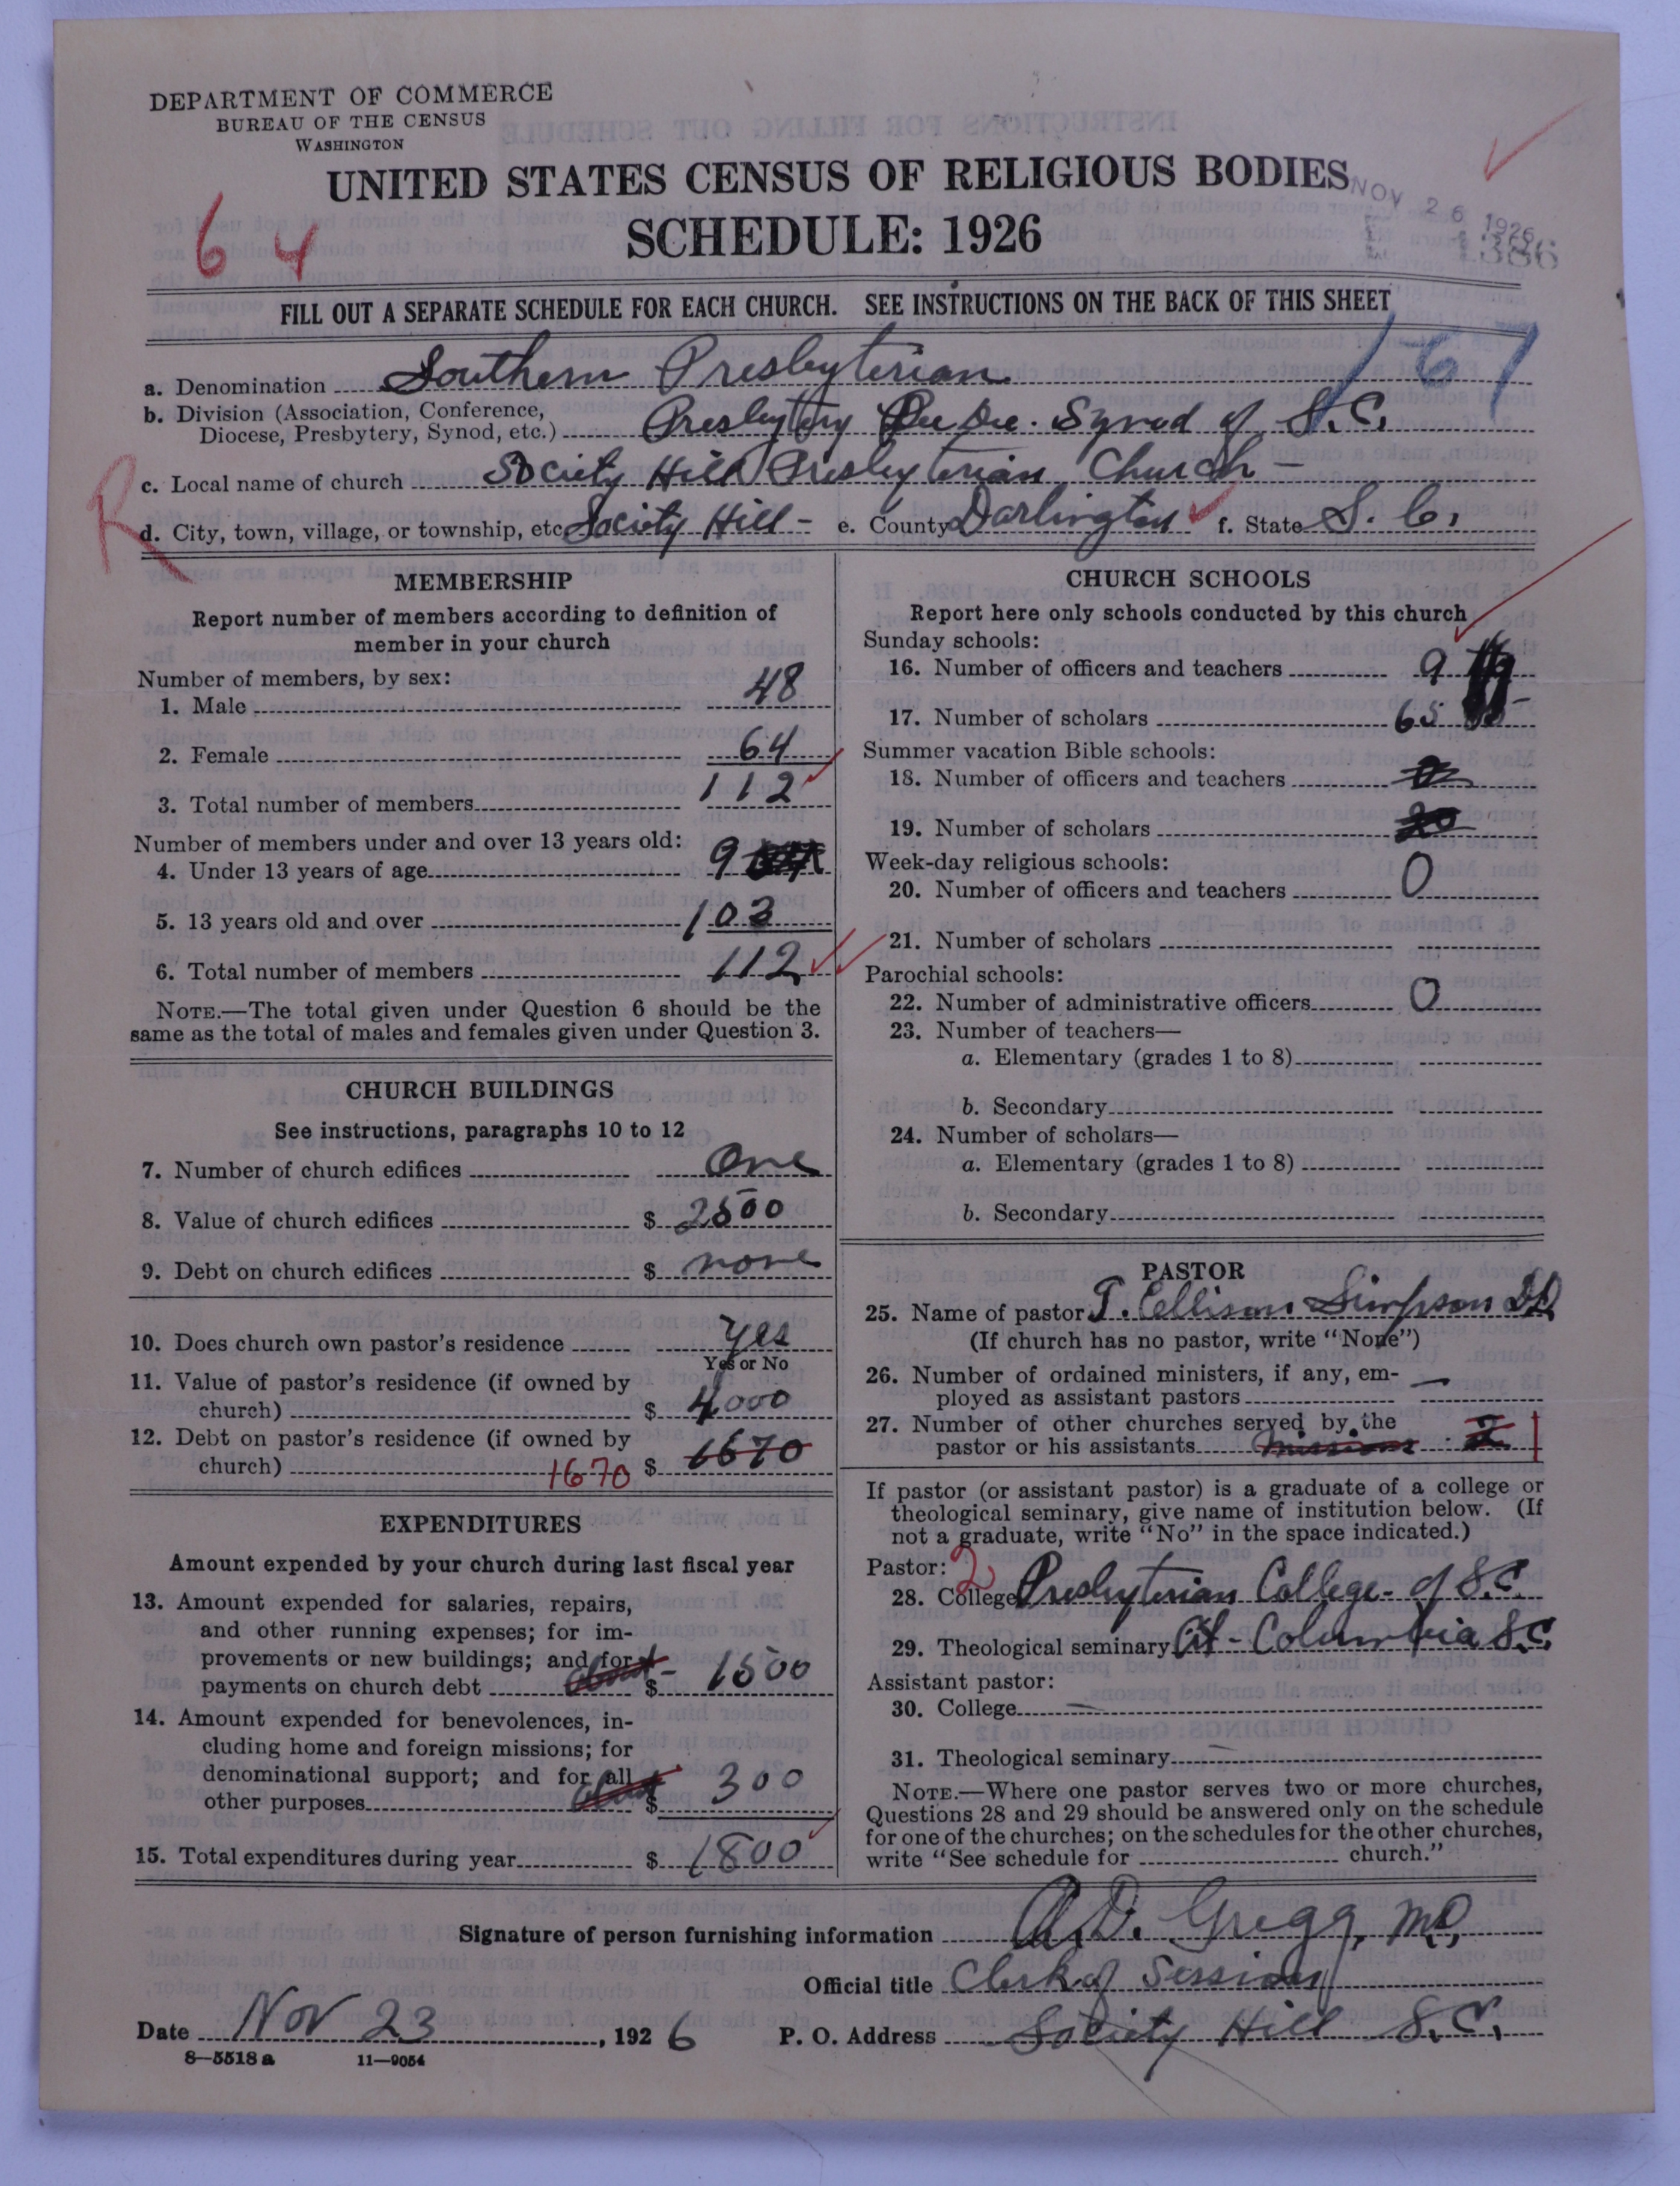 DEPARTMENT OF COMMERCE
BUREAU OF THE CENSUS
WASHINGTON
UNITED STATES CENSUS OF RELIGIOUS BODIES
SCHEDULE: 1926
NOV 26 1926
64
FILL OUT A SEPARATE SCHEDULE FOR EACH CHURCH. SEE INSTRUCTIONS ON THE BACK OF THIS SHEET
167
a. Denomination Southern Presbyterian
b. Division (Association, Conference,
Diocese, Presbytery, Synod, etc.) Presbytery Pee Dee. Synod of S.C.
R
c. Local name of church Society Hill Presbyterian Church -
d. City, town, village, or township, etc. Society Hill - e. County Darlington f. State S. C.
MEMBERSHIP
Report number of members according to definition of
member in your church
Number of members, by sex:
1. Male 48
2. Female 64
3. Total number of members 112
Number of members under and over 13 years old:
4. Under 13 years of age 9
5. 13 years old and over 103
6. Total number of members 112
NOTE.—The total given under Question 6 should be the
same as the total of males and females given under Question 3.
CHURCH BUILDINGS
See instructions, paragraphs 10 to 12
7. Number of church edifices One
8. Value of church edifices $ 2500
9. Debt on church edifices $ none
10. Does church own pastor's residence yes
Yes or No
11. Value of pastor's residence (if owned by
church) $ 4000
12. Debt on pastor's residence (if owned by
church) 1670 $ 1670
EXPENDITURES
Amount expended by your church during last fiscal year
13. Amount expended for salaries, repairs,
and other running expenses; for im-
provements or new buildings; and for
payments on church debt about $ 1500
14. Amount expended for benevolences, in-
cluding home and foreign missions; for
denominational support; and for all
other purposes about $ 300
15. Total expenditures during year $ 1800
CHURCH SCHOOLS
Report here only schools conducted by this church
Sunday schools:
16. Number of officers and teachers 9
17. Number of scholars 65
Summer vacation Bible schools:
18. Number of officers and teachers 2
19. Number of scholars 20
Week-day religious schools:
20. Number of officers and teachers 0
21. Number of scholars
Parochial schools:
22. Number of administrative officers 0
23. Number of teachers—
a. Elementary (grades 1 to 8)
b. Secondary
24. Number of scholars—
a. Elementary (grades 1 to 8)
b. Secondary
PASTOR
25. Name of pastor T. Ellison Simpson DD
(If church has no pastor, write "None")
26. Number of ordained ministers, if any, em-
ployed as assistant pastors —
27. Number of other churches served by the
pastor or his assistants missions 2
If pastor (or assistant pastor) is a graduate of a college or
theological seminary, give name of institution below. (If
not a graduate, write "No" in the space indicated.)
Pastor: 2
28. College Presbyterian College - of S.C.
29. Theological seminary At - Columbia S.C.
Assistant pastor:
30. College —
31. Theological seminary —
NOTE.—Where one pastor serves two or more churches,
Questions 28 and 29 should be answered only on the schedule
for one of the churches; on the schedules for the other churches,
write "See schedule for church."
Signature of person furnishing information A.D. Gregg, MD,
Official title Clerk of Session
Date Nov 23, 1926 P. O. Address Society Hill S.C.
8—5518 a 11—9054